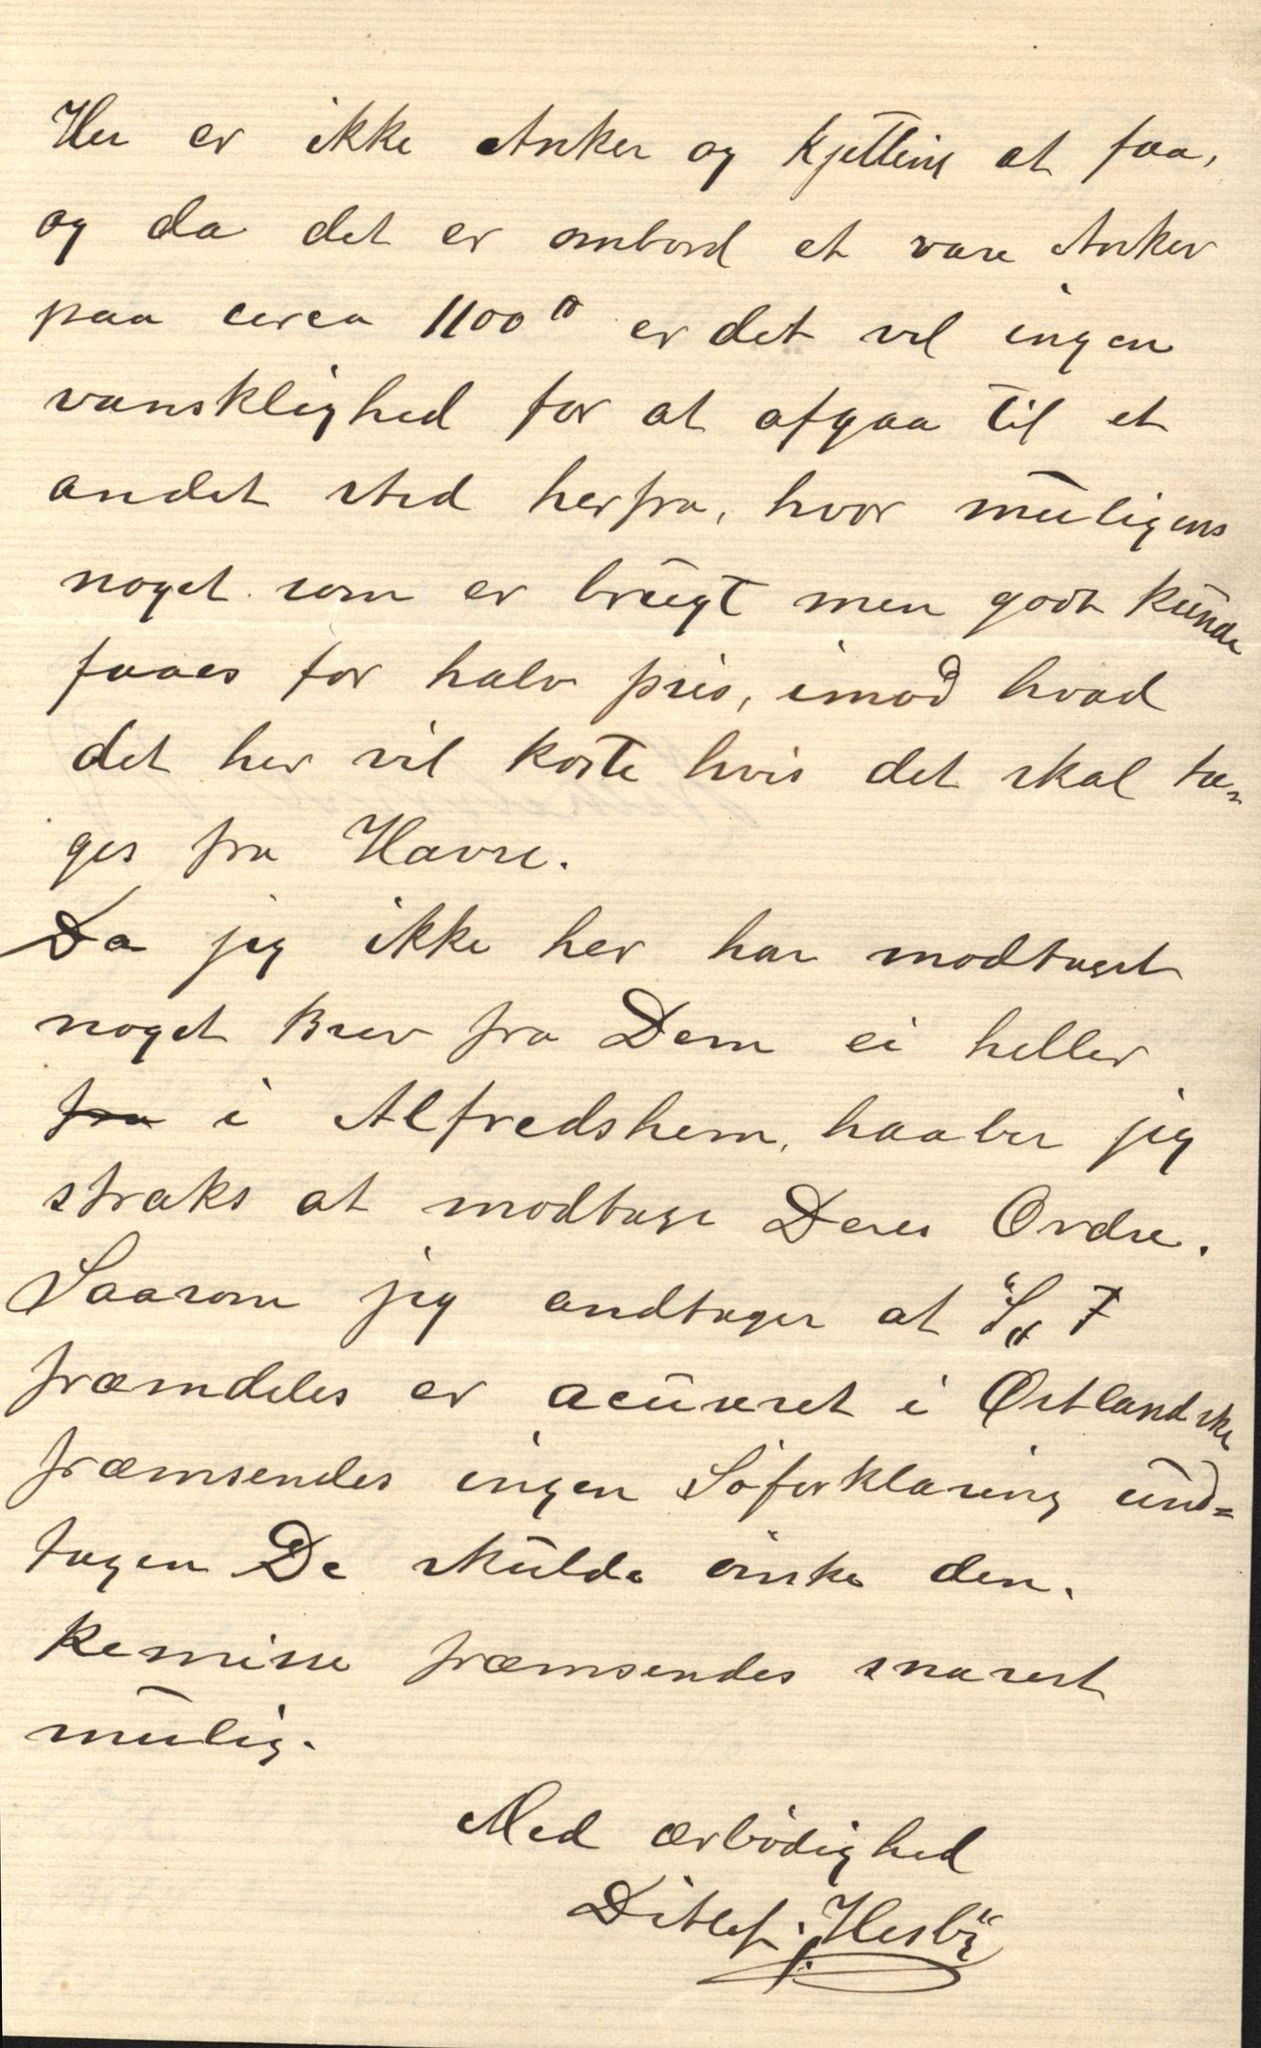 Her er ikke Anker og Kjetting at faa,
og da det er ombord et vare Anker
paa circa 1100 ₶ er det vel ingen
vansklighed for at afgaa til et
andet sted herfra, hvor muligens
noget som er brugt men godt kunde
faaes for halv pris, imod hvad
det her vil koste hvis det skal ta=
ges fra Havre.
Da jeg ikke her har modtaget
noget Brev fra Dem ei heller
fra i Alfredshem, haaber jeg
straks at modtage Deres Ordre.
Saasom jeg andtager at "S" 7
fræmdeles er acureret i Østlandske
fræmsendes ingen Söforklaring und=
tagen De skulde önske den.
Remisse fræmsendes snarest
mulig.
Med ærbödighed
Ditlef. Hesby